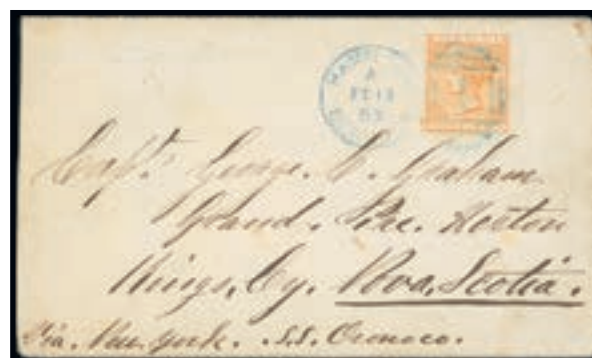 A
FE 13
Capt. George. C. Graham
Grand. Pre. Horton
Kings. Cy. Nova. Scotia.
Via. New. York. S.S. Oronoco.